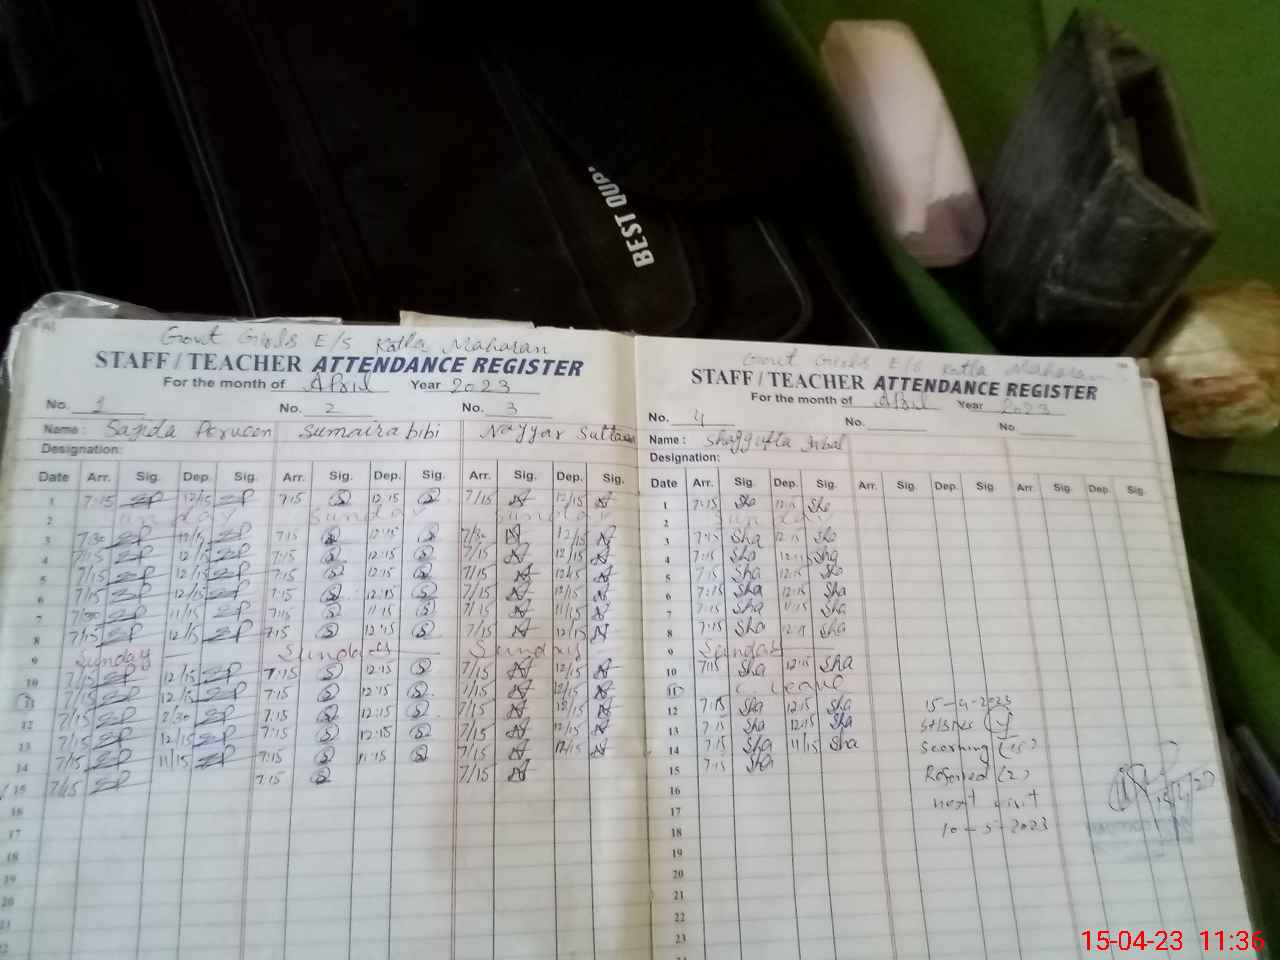 BEST QUP
Govt Girls E/S Kotla Maharan
STAFF / TEACHER ATTENDANCE REGISTER
For the month of April Year 2023
No. 1 No. 2 No. 3
Name: Sajida Perveen Sumaira bibi Nayyar Sultana
Designation:
Date Arr. Sig. Dep. Sig. Arr. Sig. Dep. Sig. Arr. Sig. Dep. Sig.
1 7:15 SP 12/15 SP 7:15 S 12:15 S 7/15 N 12/15 N
2 Sunday Sunday Sunday
3 7/30 SP 12/15 SP 7:15 S 12:15 S 7/30 N 12/15 N
4 7/15 SP 12/15 SP 7:15 S 12:15 S 7/15 N 12/15 N
5 7/15 SP 12/15 SP 7:15 S 12:15 S 7/15 N 12/15 N
6 7/15 SP 12/15 SP 7:15 S 12:15 S 7/15 N 12/15 N
7 7/30 SP 11/15 SP 7:15 S 11:15 S 7/15 N 11/15 N
8 7/15 SP 12/15 SP 7:15 S 12:15 S 7/15 N 12/15 N
9 Sunday Sunday Sunday
10 7/15 SP 12/15 SP 7:15 S 12:15 S 7/15 N 12/15 N
11 7/15 SP 12/15 SP 7:15 S 12:15 S 7/15 N 12/15 N
12 7/15 SP SP 7:15 S 12:15 S 7/15 N 12/15 N
13 7/15 SP 12/15 SP 7:15 S 12:15 S 7/15 N 12/15 N
14 7/15 SP 11/15 SP 7:15 S 11:15 S 7/15 N N
15 7/15 SP 7:15 S 7/15 N
16
17
18
19
20
21
22
Govt Girls E/S Kotla Maharan
STAFF / TEACHER ATTENDANCE REGISTER
For the month of April Year 2023
No. 4 No. No.
Name: Shaggufta Iqbal
Designation:
Date Arr. Sig. Dep. Sig. Arr. Sig. Dep. Sig. Arr. Sig. Dep. Sig.
1 7:15 Sha 12:15 Sha
2 Sunday
3 7:15 Sha 12:15 Sha
4 7:15 Sha 12:15 Sha
5 7:15 Sha 12:15 Sha
6 7:15 Sha 12:15 Sha
7 7:15 Sha 11:15 Sha
8 7:15 Sha 12:15 Sha
9 Sunday
10 7:15 Sha 12:15 Sha
11 C. Leave
12 7:15 Sha 12:15 Sha
13 7:15 Sha 12:15 Sha
14 7:15 Sha 11/15 Sha
15 7:15 Sha
16
17
18
19
20
21
22
23
15-4-2023
next visit
10-5-2023
15-04-23 11:36